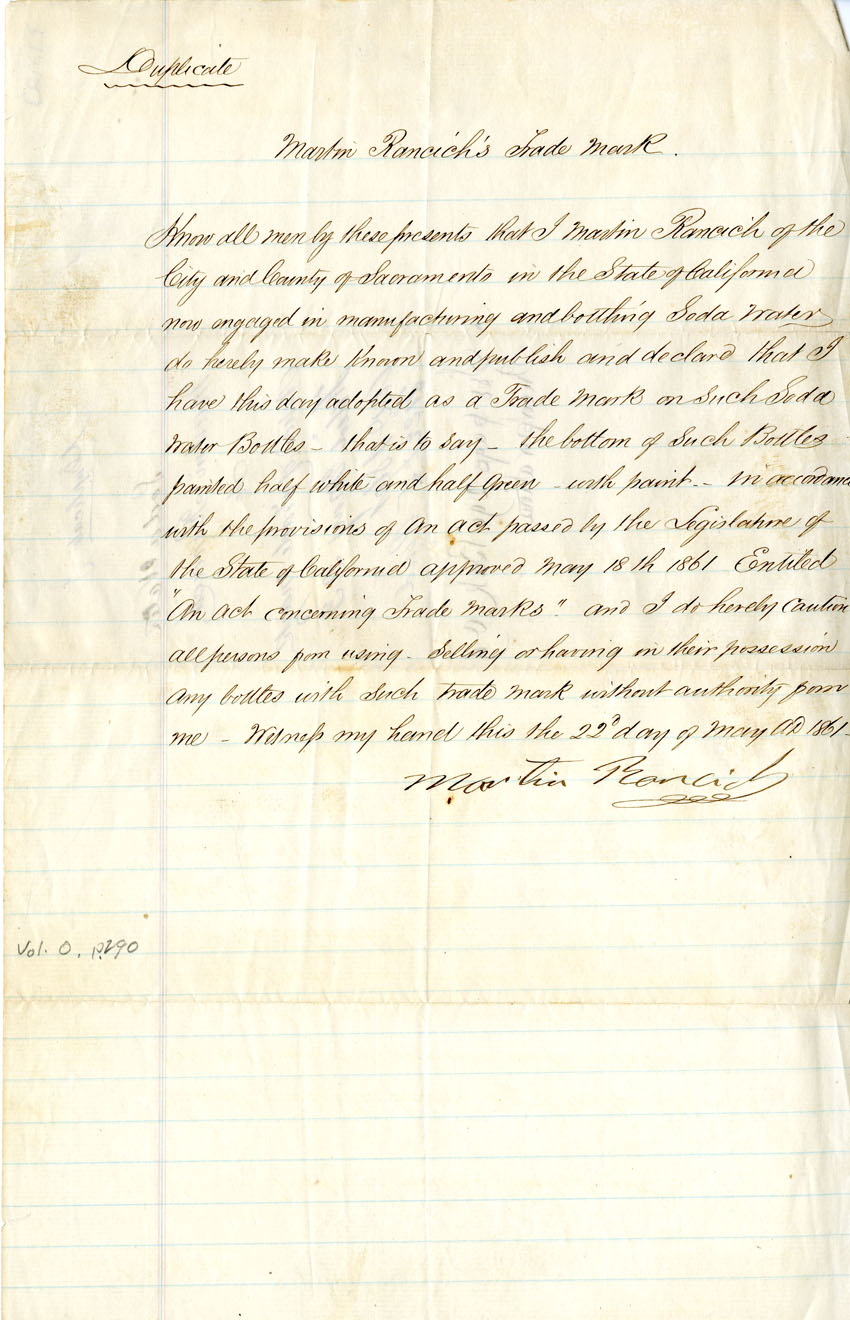 Duplicate
Martin Rancich's Trade Mark.
Know all men by these presents that I Martin Rancich of the
City and County of Sacramento in the State of California
now engaged in manufacturing and bottling Soda Water
do hereby make Known and publish and declare that I
have this day adopted as a Trade Mark on Such Soda
Water Bottles - that is to say - the bottom of Such Bottles
painted half white and half Green - with paint -- In accordance
with the provisions of An act passed by the Legislature of
the State of California approved May 18th 1861 Entitled
"An Act concerning Trade Marks". and I do hereby caution
all persons from using - Selling or having in their possession
any bottles with Such trade mark without authority from
me - Witness my hand this the 22d day of May AD 1861-
Martin Rancich
Vol. O, p.290